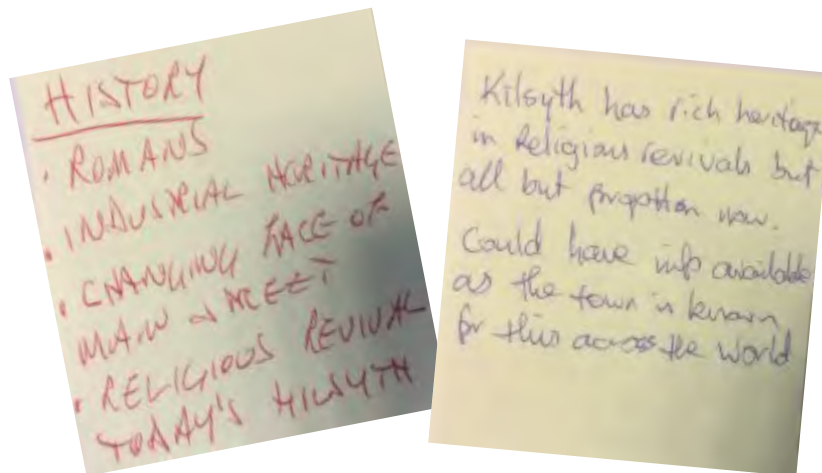 HISTORY
• ROMANS
• INDUSTRIAL HERITAGE
• CHANGING FACE OF
MAIN STREET
• RELIGIOUS REVIVAL
TODAY'S KILSYTH
Kilsyth has rich heritage
in Religious revivals but
all but forgotten now.
Could have info available
as the town is known
for this across the world